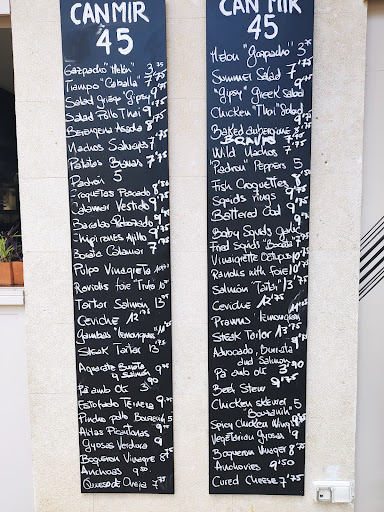 CAN MIR
45
Gazpacho "Melon" 3'75
Tiampo "Caballa" 7'75
Salad Griego "Gipsy" 9'75
Salad Pollo Thai 9'75
Berengena Asada 8'75
Nachos Salvajes 7'75
Patatas Bravas 7'75
Padron 5
Croquetas Pescado
Calamar Vestido 9'75
Bacalao Rebozado 9'75
Chipirones Ajillo 9'75
Bocata Calamar 7'75
Pulpo Vinagreta
Raviolis foie "Trufa" 10'75
Tartar Salmón
Ceviche 12'75
Gambas "lemongrass"
Steak Tartar 13'75
Aguacate Burrata y Salmón 9'75
Pa amb oli 3'90
Estofado Ternera 9'75
Pincho pollo Bourguiñ 5
Alitas Picantonas 9
Gyosas Verdura 9
Boqueron Vinagre 8'75
Anchoas 9'50
Queso de Oveja 7'75
CAN MIR
45
Melon "Gazpacho" 3'75
Summer Salad 7'75
"Gipsy" Greek Salad 9'75
Chicken "Thai" Salad 9'75
Baked aubergine 8'75
BRAVAS 7'75
Wild Nachos 7'75
"Padron" Peppers 5
Fish Croquettes
Squids rings 9'75
Battered Cod 9'75
Baby Squids Garlic
Fried Squids "Bocata"
Vinaigrette Octopus
Raviolis with Foie 10'75
Salmón "Tartar"
Ceviche 12'75
Prawns "lemongrass"
Steak Tartar 13'75
Avocado, Burrata
and Salmon
Pa amb oli 3'90
Beek Stew 9'75
Chicken skewer 5
"Bourawiñ"
Spicy Chicken Wings 9
Vegetarian Gyosas 9
Boqueron Vinager 8'75
Anchovies 9'50
Cured Cheese 7'75